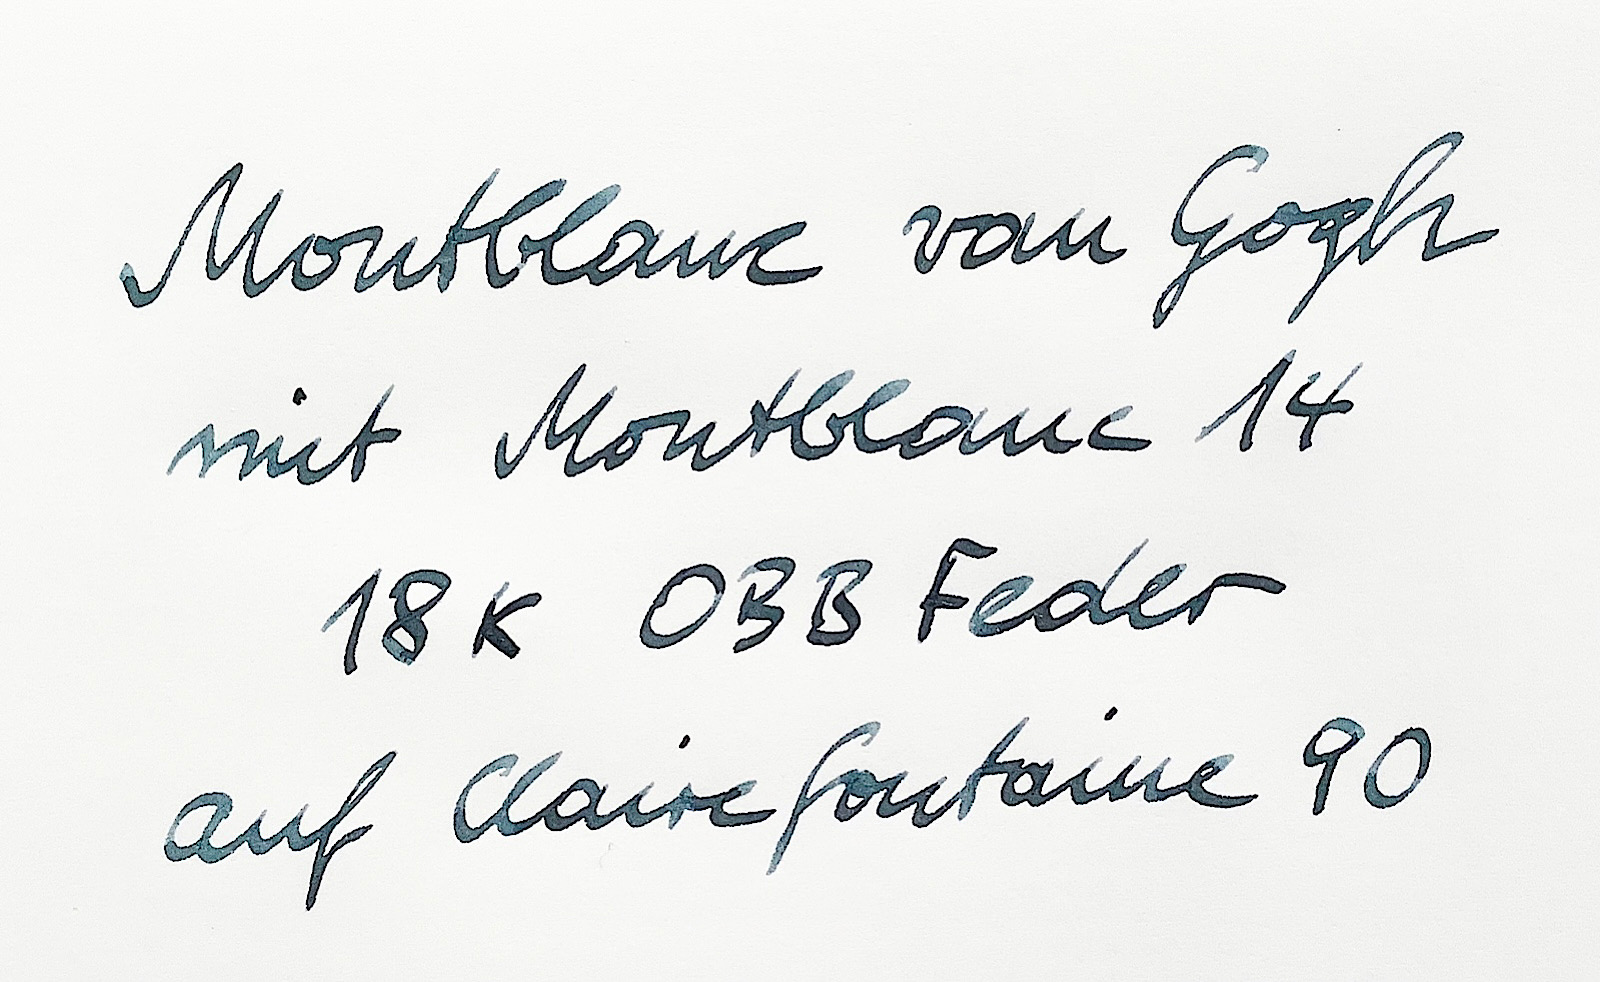 Montblanc van Gogh
mit Montblanc 14
18K OBB Feder
auf Clairefontaine 90